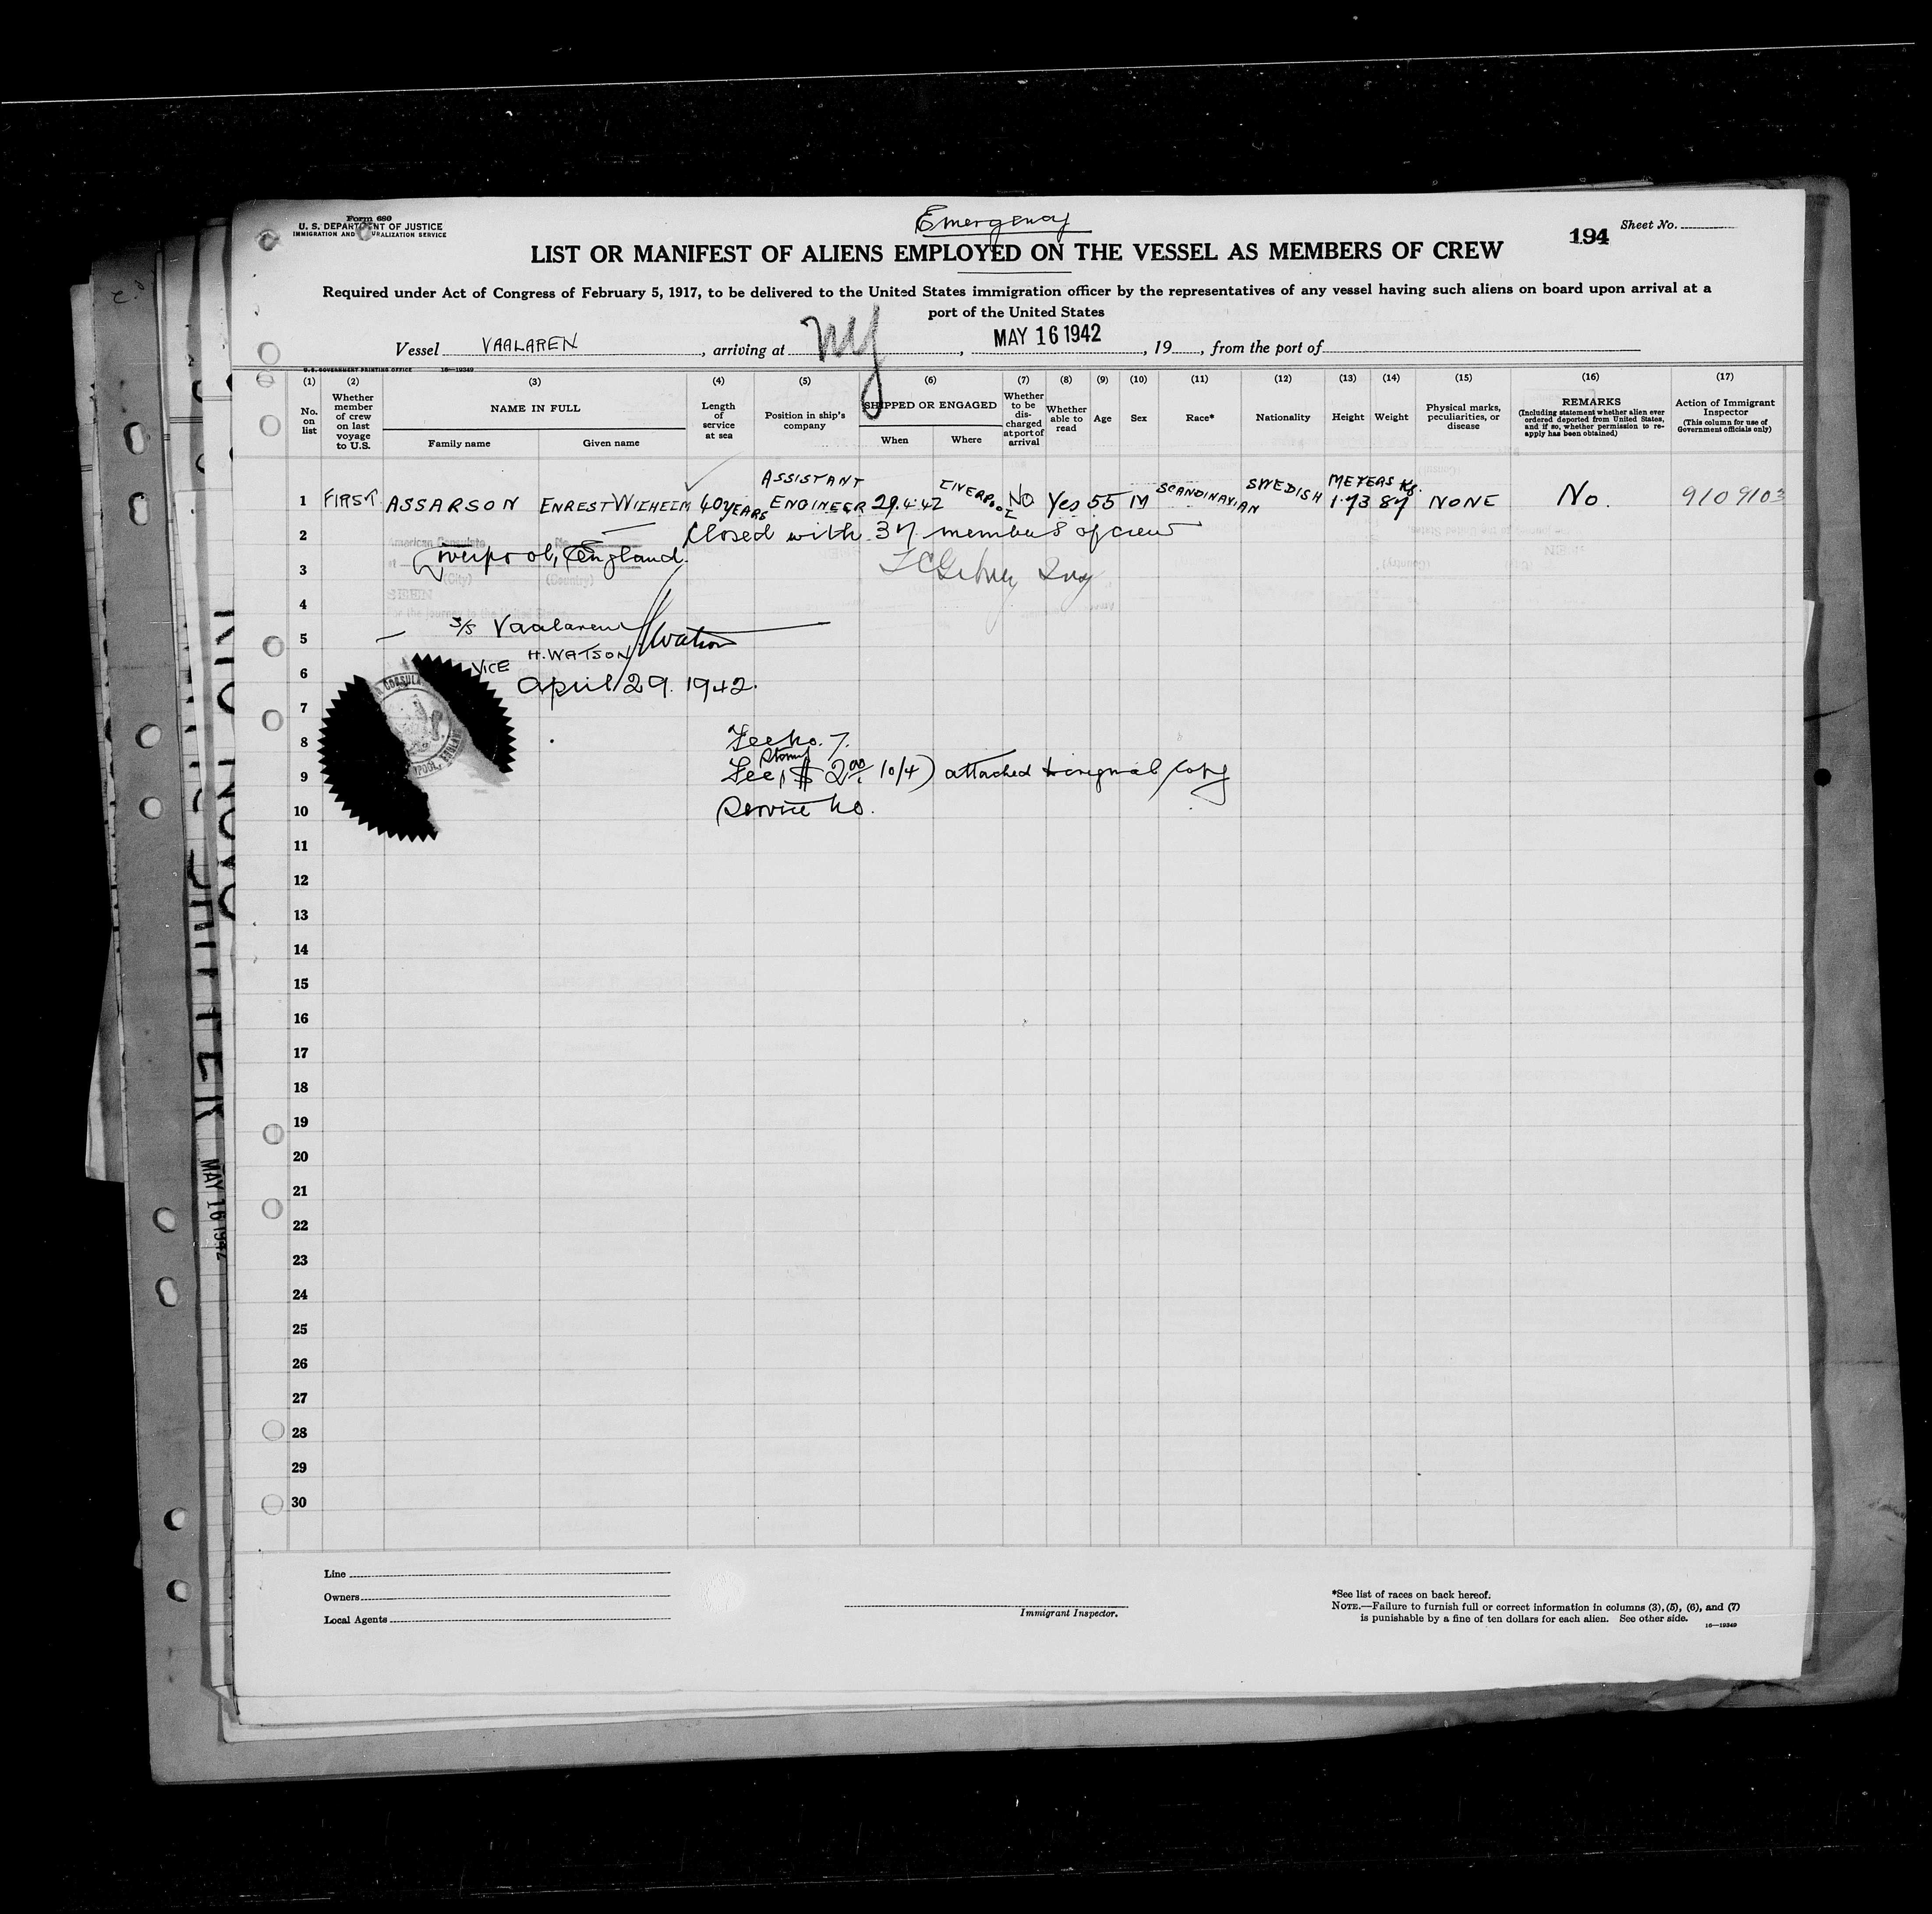 Form 680
U. S. DEPARTMENT OF JUSTICE
IMMIGRATION AND NATURALIZATION SERVICE
Emergency
194 Sheet No.
LIST OR MANIFEST OF ALIENS EMPLOYED ON THE VESSEL AS MEMBERS OF CREW
Required under Act of Congress of February 5, 1917, to be delivered to the United States immigration officer by the representatives of any vessel having such aliens on board upon arrival at a
port of the United States
Vessel VAALAREN, arriving at NY, MAY 16 1942, 19, from the port of
U. S. GOVERNMENT PRINTING OFFICE 16—19349
(1) (2) (3) (4) (5) (6) (7) (8) (9) (10) (11) (12) (13) (14) (15) (16) (17)
No. on list
Whether member of crew on last voyage to U.S.
NAME IN FULL
Family name
Given name
Length of service at sea
Position in ship's company
SHIPPED OR ENGAGED
When
Where
Whether to be discharged at port of arrival
Whether able to read
Age
Sex
Race*
Nationality
Height
Weight
Physical marks, peculiarities, or disease
REMARKS
(Including statement whether alien ever ordered deported from United States, and if so, whether permission to re-apply has been obtained)
Action of Immigrant Inspector
(This column for use of Government officials only)
1 FIRST ASSARSON ENREST WILHELM 40 YEARS ASSISTANT ENGINEER 29.4.42 LIVERPOOL NO Yes 55 M SCANDINAVIAN SWEDISH METERS 1.73 Kg. 87 NONE No. 910 9103
2 Closed with 37 members of crew
American Consulate No.
Liverpool, England.
3
(City) (Country)
SEEN
4
For the journey to the United States
5 S/S Vaalaren
H. Watson
H. WATSON
6 VICE
April 29. 1942.
7
8 Fee No. 7.
Stamp
9 Fee $ 2.00 10/4) attached to original copy
10 Service No.
11
12
13
14
15
16
17
18
19
20
21
22
23
24
25
26
27
28
29
30
Line
Owners
Local Agents
Immigrant Inspector.
*See list of races on back hereof.
NOTE.—Failure to furnish full or correct information in columns (3), (5), (6), and (7)
is punishable by a fine of ten dollars for each alien. See other side.
16—19349
MAY 16 1942